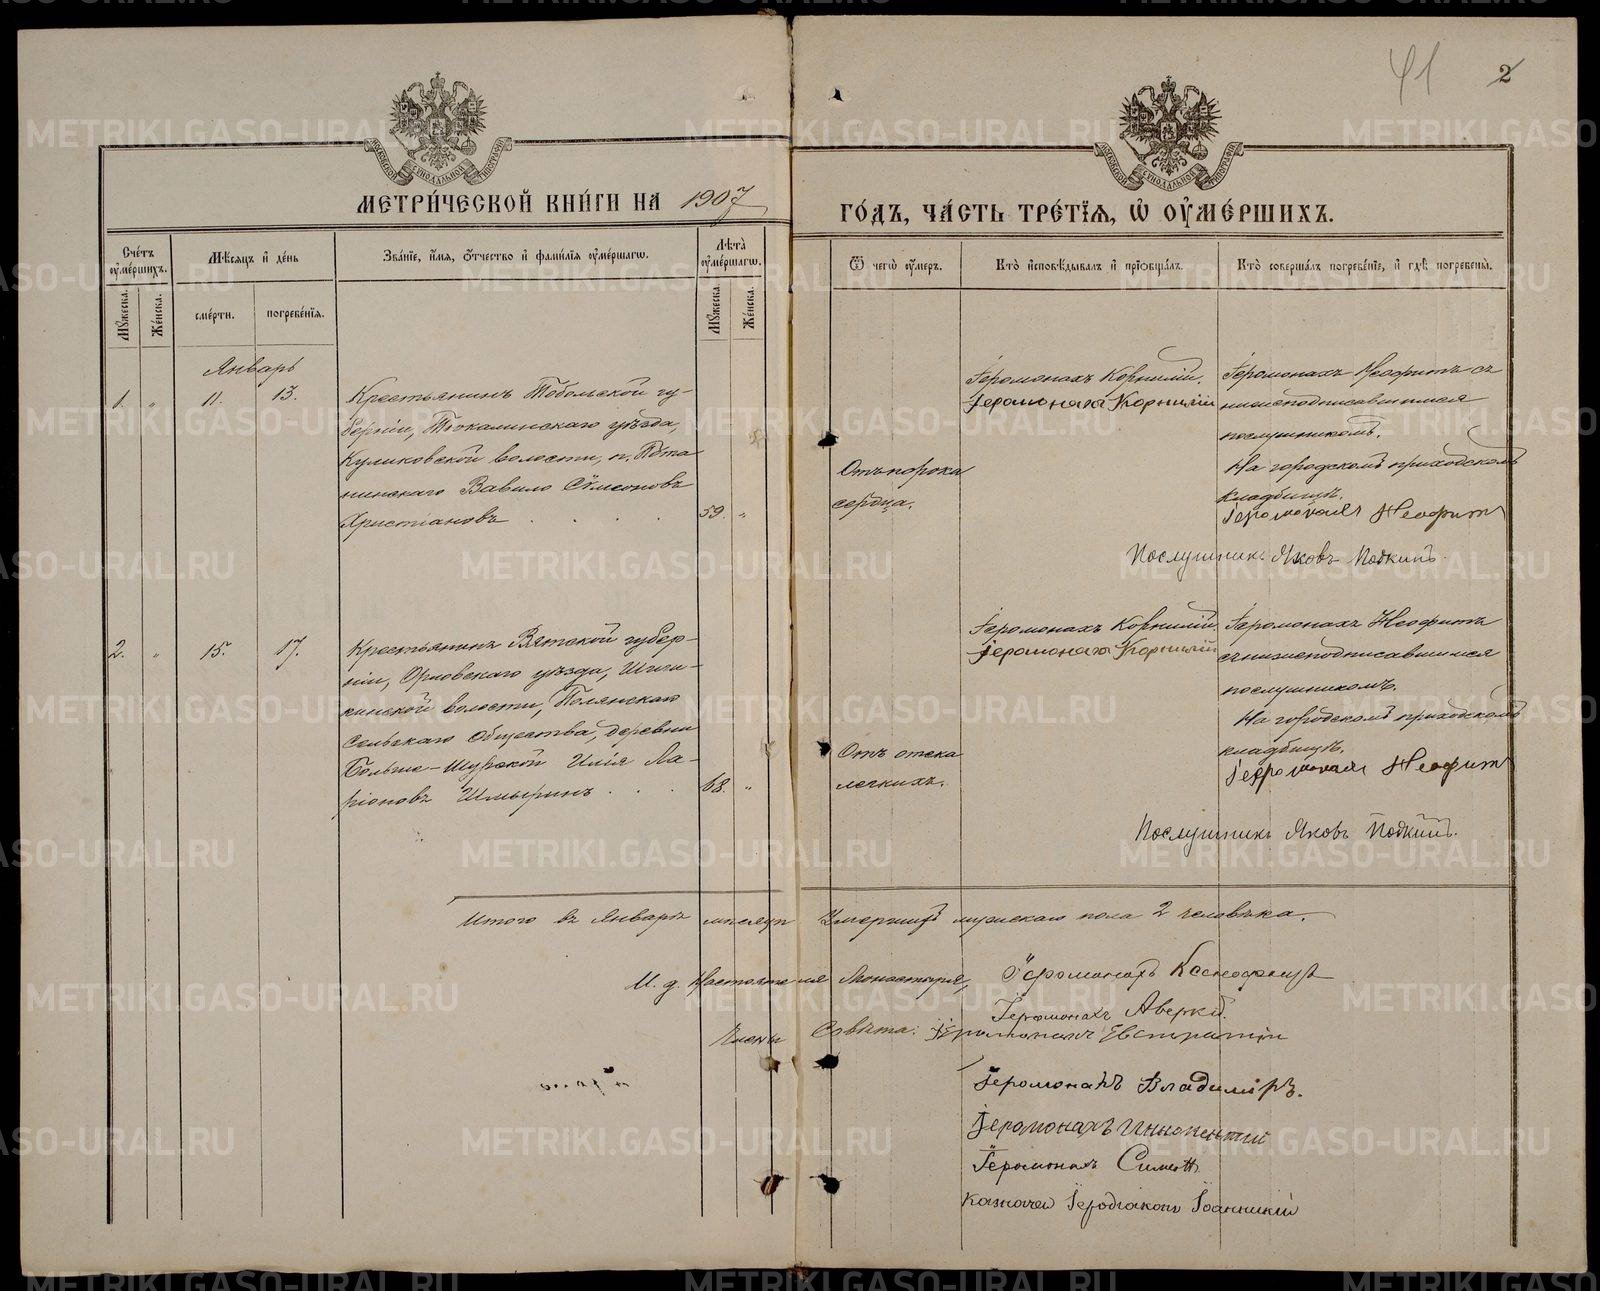 41 2
МЕТРИ́ЧЕСКОЙ КНИ́ГИ НА 1907
ГО́ДЪ, ЧА́СТЬ ТРЕ́ТЇѦ, Ѡ҆ ОУ҆МЕ́РШИХЪ.
Сче́тъ оу҆ме́ршихъ.
Мѣ́сѧцъ и҆ де́нь
Зва́нїе, и҆́мѧ, ѻ҆́тчество и҆ фами́лїѧ оу҆ме́ршагѡ.
Лѣ́та оу҆ме́ршагѡ.
Ѿ чегѡ̀ оу҆́меръ.
Кто̀ и҆сповѣ́дывалъ и҆ прїѡбща́лъ.
Кто̀ соверша́лъ погребе́нїе, и҆ гдѣ̀ погребены̀.
Мꙋ́жеска.
Же́нска.
сме́рти.
погребе́нїѧ.
Мꙋ́жеска.
Же́нска.
Январь
1. " 11. 13.
Крестьянинъ Тобольской гу-
берніи, Тюкалинскаго уѣзда,
Куликовской волости,
Вавило Сѵмеоновъ
Христіановъ . . . . 59. "
Отъ порока
сердца.
Іеромонахъ Корнилій.
Іеромонахъ Корнилій
Іеромонахъ Неофитъ съ
нижеподписавшимся
послушникомъ.
На городскомъ приходскомъ
кладбищѣ.
Іеромонахъ Неофитъ
Послушникъ Яковъ
2. " 15. 17.
Крестьянинъ Вятской губер-
ніи, Орловскаго уѣзда,
волости, Полянскаго
Сельскаго Общества, деревни
Больше-Шурской Илія Ла-
ріоновъ Шмыринъ . . . 68. "
Отъ отека
легкихъ.
Іеромонахъ Корнилій
Іеромонахъ Корнилій
Іеромонахъ Неофитъ
съ нижеподписавшимся
послушникомъ.
На городскомъ приходскомъ
кладбищѣ.
Іеромонахъ Неофитъ
Послушникъ Яковъ
Итого въ Январѣ мѣсяцѣ Умершихъ мужескаго пола 2 человѣка.
И. д. Настоятеля Монастыря, Іеромонахъ Ксенофонтъ
Іеромонахъ Аверкій.
Члены Совѣта: Іеромонахъ Евстратій
Іеромонахъ Владиміръ.
Іеромонахъ Иннокентій
Іеромонахъ Симеонъ
Казначей Іеродіаконъ Іоанникій
METRIKI.GASO-URAL.RU